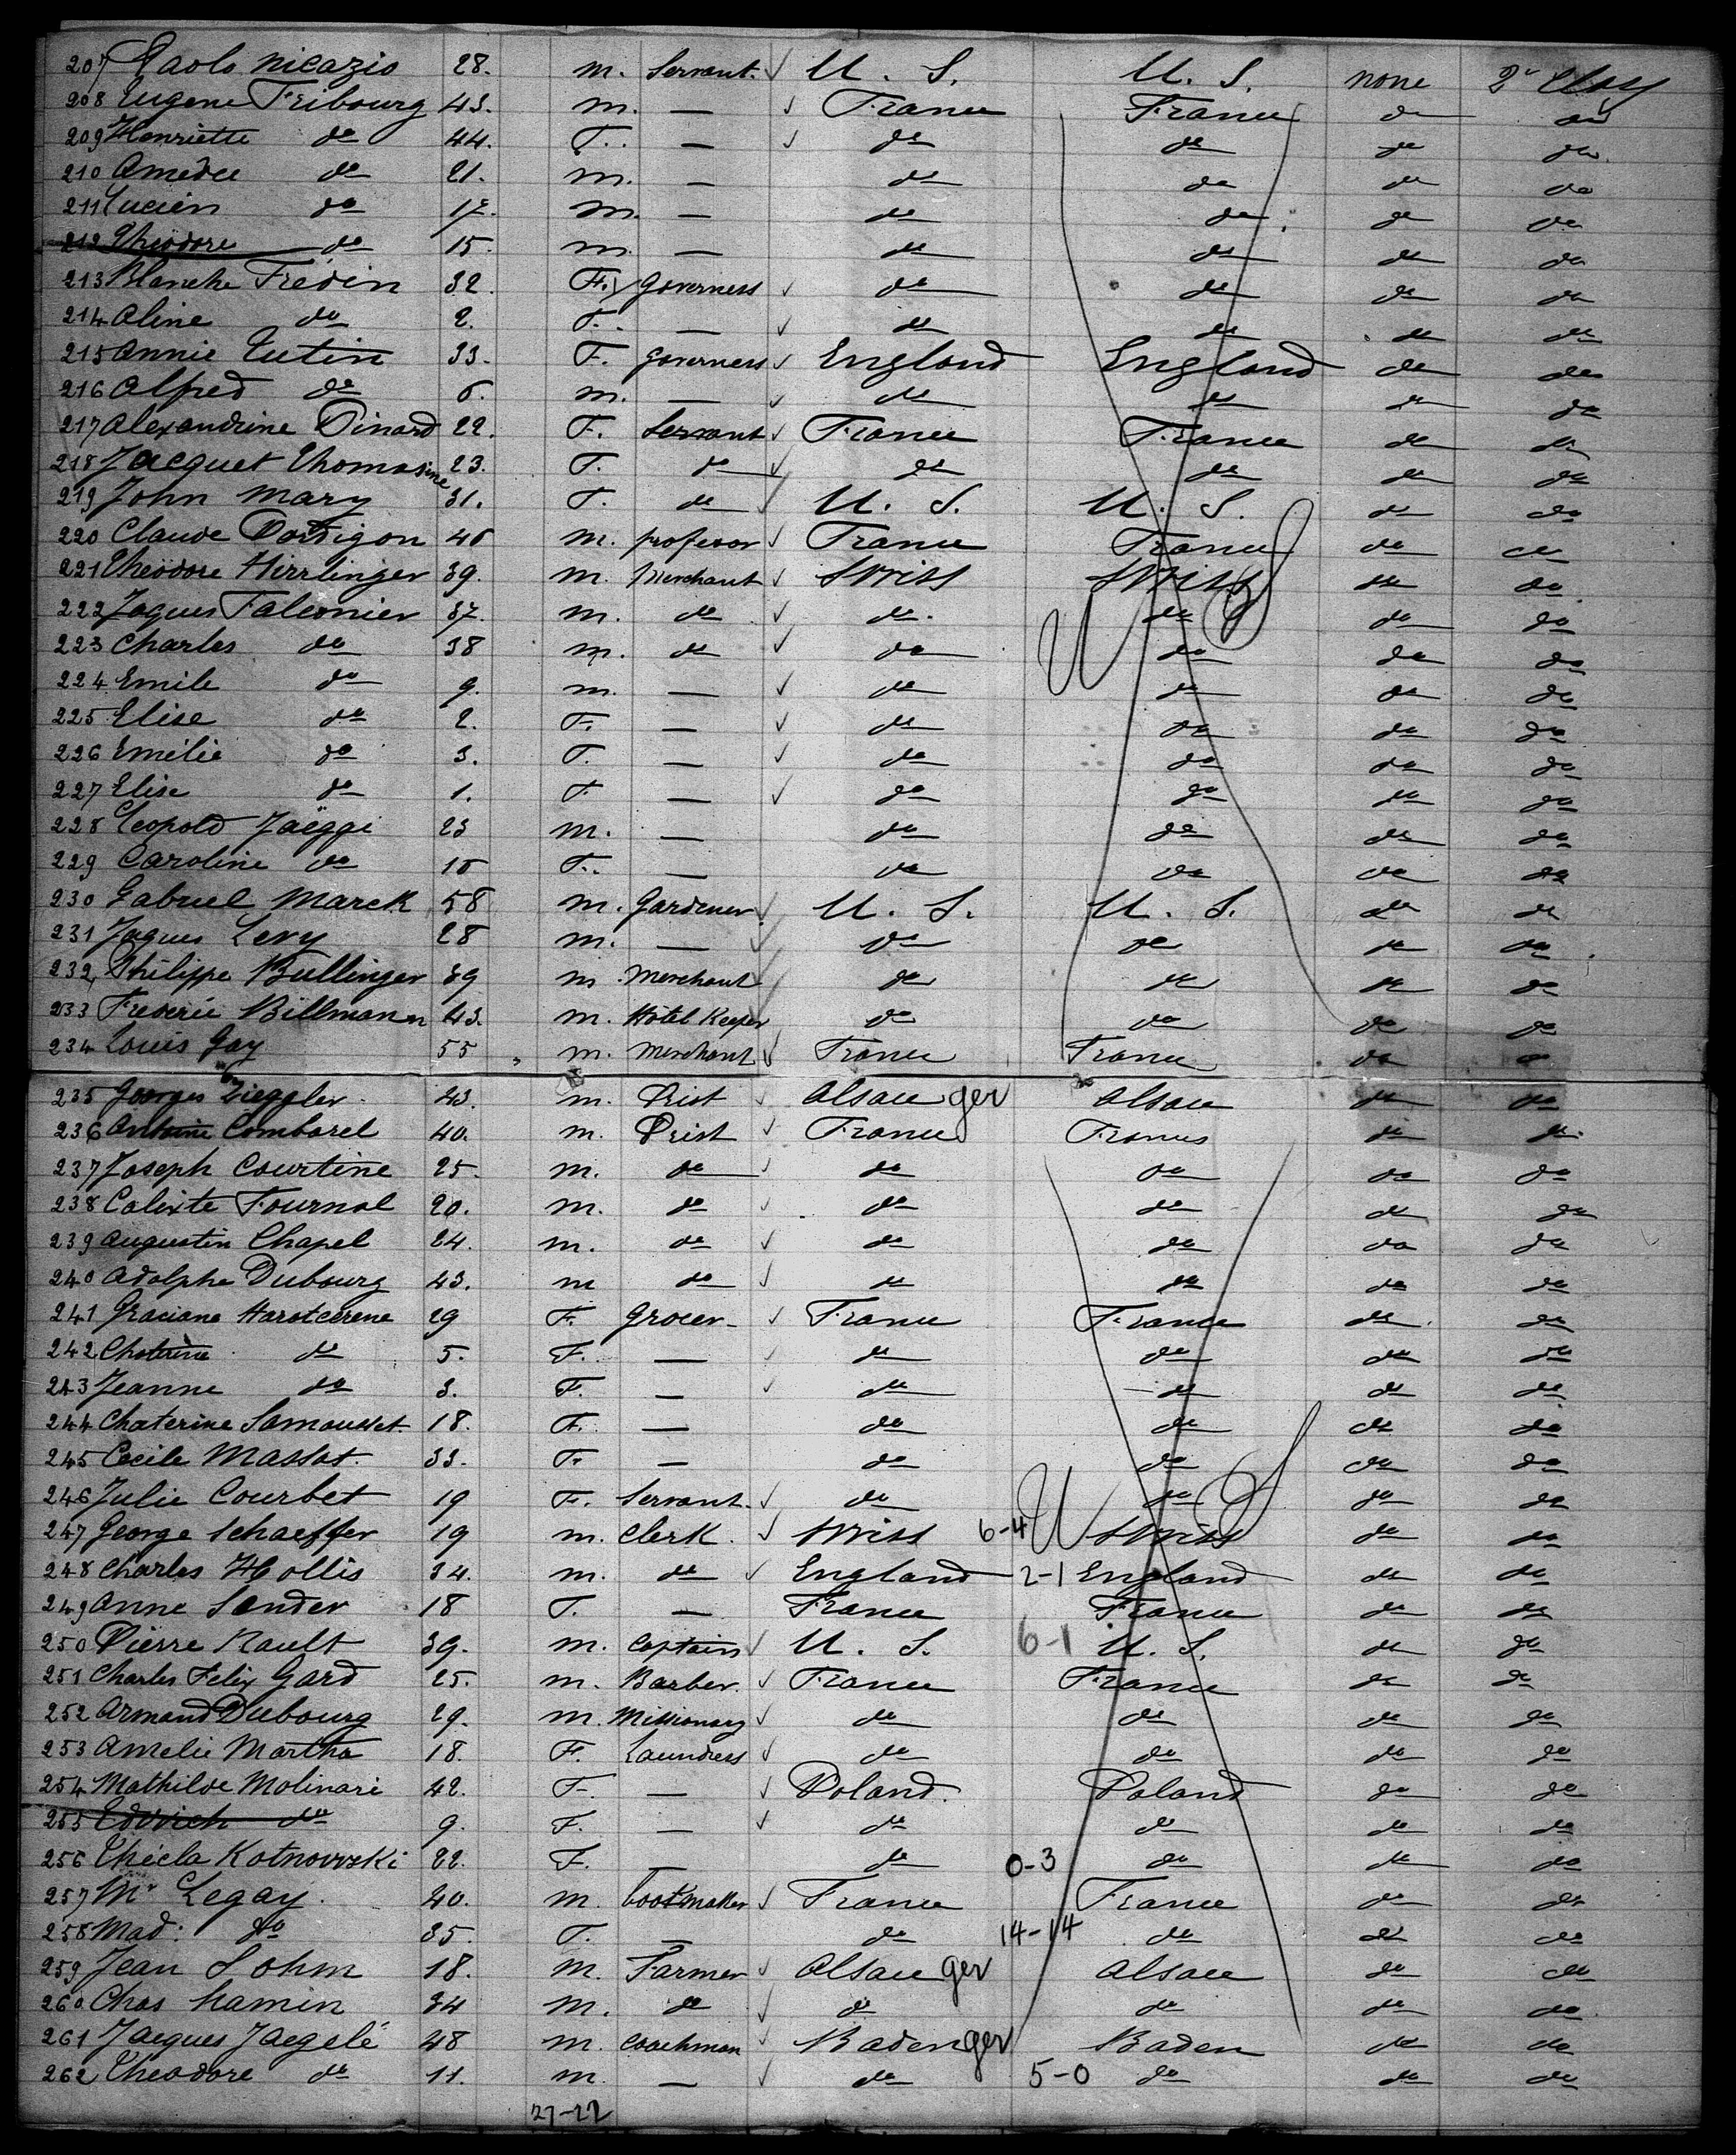 207 Paolo Nicazio 28. m. Servant. ✓ U. S. U. S. none 2d Class
208 Eugene Fribourg 43. m. — ✓ France France do do
209 Henriette do 44. F. — ✓ do do do do
210 Amedee do 21. m. — do do do do
211 Lucien do 17. m. — do do do do
212 Theodore do 15. m. — do do do do
213 Blanche Fredin 32. F. Governess ✓ do do do do
214 Aline do 2. F. — ✓ do do do do
215 Annie Tutin 33. F. Governess ✓ England England do do
216 Alfred do 6. m. — ✓ do do do do
217 Alexandrine Pinard 22. F. Servant ✓ France France do do
218 Jacquet Thomasine 23. F. do ✓ do do do do
219 John Mary 31. F. do ✓ U. S. U. S. do do
220 Claude Dordigon m. profesor ✓ France France do do
221 Theodore Hirrlinger 39. m. Merchant ✓ Swiss Swiss do do
222 Jaques Falconier 37. m. do ✓ do. do do do
U S
223 Charles do 38 m. do ✓ do do do do
224 Emile do 9. m. — ✓ do do do do
225 Elise do 2. F. — ✓ do do do do
226 Emélie do 3. F. — ✓ do do do do
227 Elise do 1. F. — ✓ do do do do
228 Leopold Jaëggi 23 m. — do do do do
229 Caroline do F. — do do do do
230 Gabriel Marck 58 m. Gardener ✓ U. S. U. S. do do
231 Jaques Levy 28 m. — ✓ do do do do
232 Philippe Bullinger 39 m. Merchant ✓ do do do do
233 Frederic Billmann 43. m. Hôtel Keeper do do do do
234 Louis Gay 55 m. Merchant ✓ France France do do
235 Georges Zieggler 43. m. Prist ✓ Alsace ger Alsace do do
236 Antoine Combarel 40. m. Prist ✓ France France do do
237 Joseph Courtine 25. m. do ✓ do do do do
238 Calixte Fournal 20. m. do ✓ do do do do
239 Augustin Chapel 24. m. do ✓ do do do do
240 Adolphe Dubourg 43. m do ✓ do do do do
241 Graciane Harotcerene 29 F. Grocer ✓ France France do do
242 Chaterine do 5. F. — ✓ do do do do
243 Jeanne do 3. F. — ✓ do do do do
244 Chaterine Samousset 18. F. — do do do do
245 Cecile Massot. 33. F. — do do do do
246 Julie Courbet 19 F. Servant. ✓ do do do do
247 George Schaeffer 19 m. Clerk. ✓ Swiss 6-4 U S Swiss do do
248 Charles Hollis 34. m. do ✓ England 2-1 England do do
249 Anne Sander 18 F. — France France do do
250 Pierre Rault 39. m. Captain ✓ U. S. 6-1 U. S. do do
251 Charles Felix Gard 25. m. Barber. ✓ France France do do
252 Armand Dubourg 29. m. Missionary ✓ do do do do
253 Amelie Martha 18. F. Laundress ✓ do do do do
254 Mathilde Molinari 42. F. — ✓ Poland. Poland do do
255 Edwich do 9. F. — ✓ do do do do
256 Thécla Kotnowski 22. F. — do 0-3 do do do
257 Mr Legay. 40. m. bootmaker ✓ France France do do
258 Mad: do 35. F. — do 14-14 do do do
259 Jean Sohm 18. m. Farmer ✓ Alsace ger Alsace do do
260 Chas Hamin 34 m. do ✓ do do do do
261 Jacques Jaegelé 48 m. Coachman ✓ Baden ger Baden do do
262 Theodore do 11. m. — ✓ do 5-0 do do do
27-22